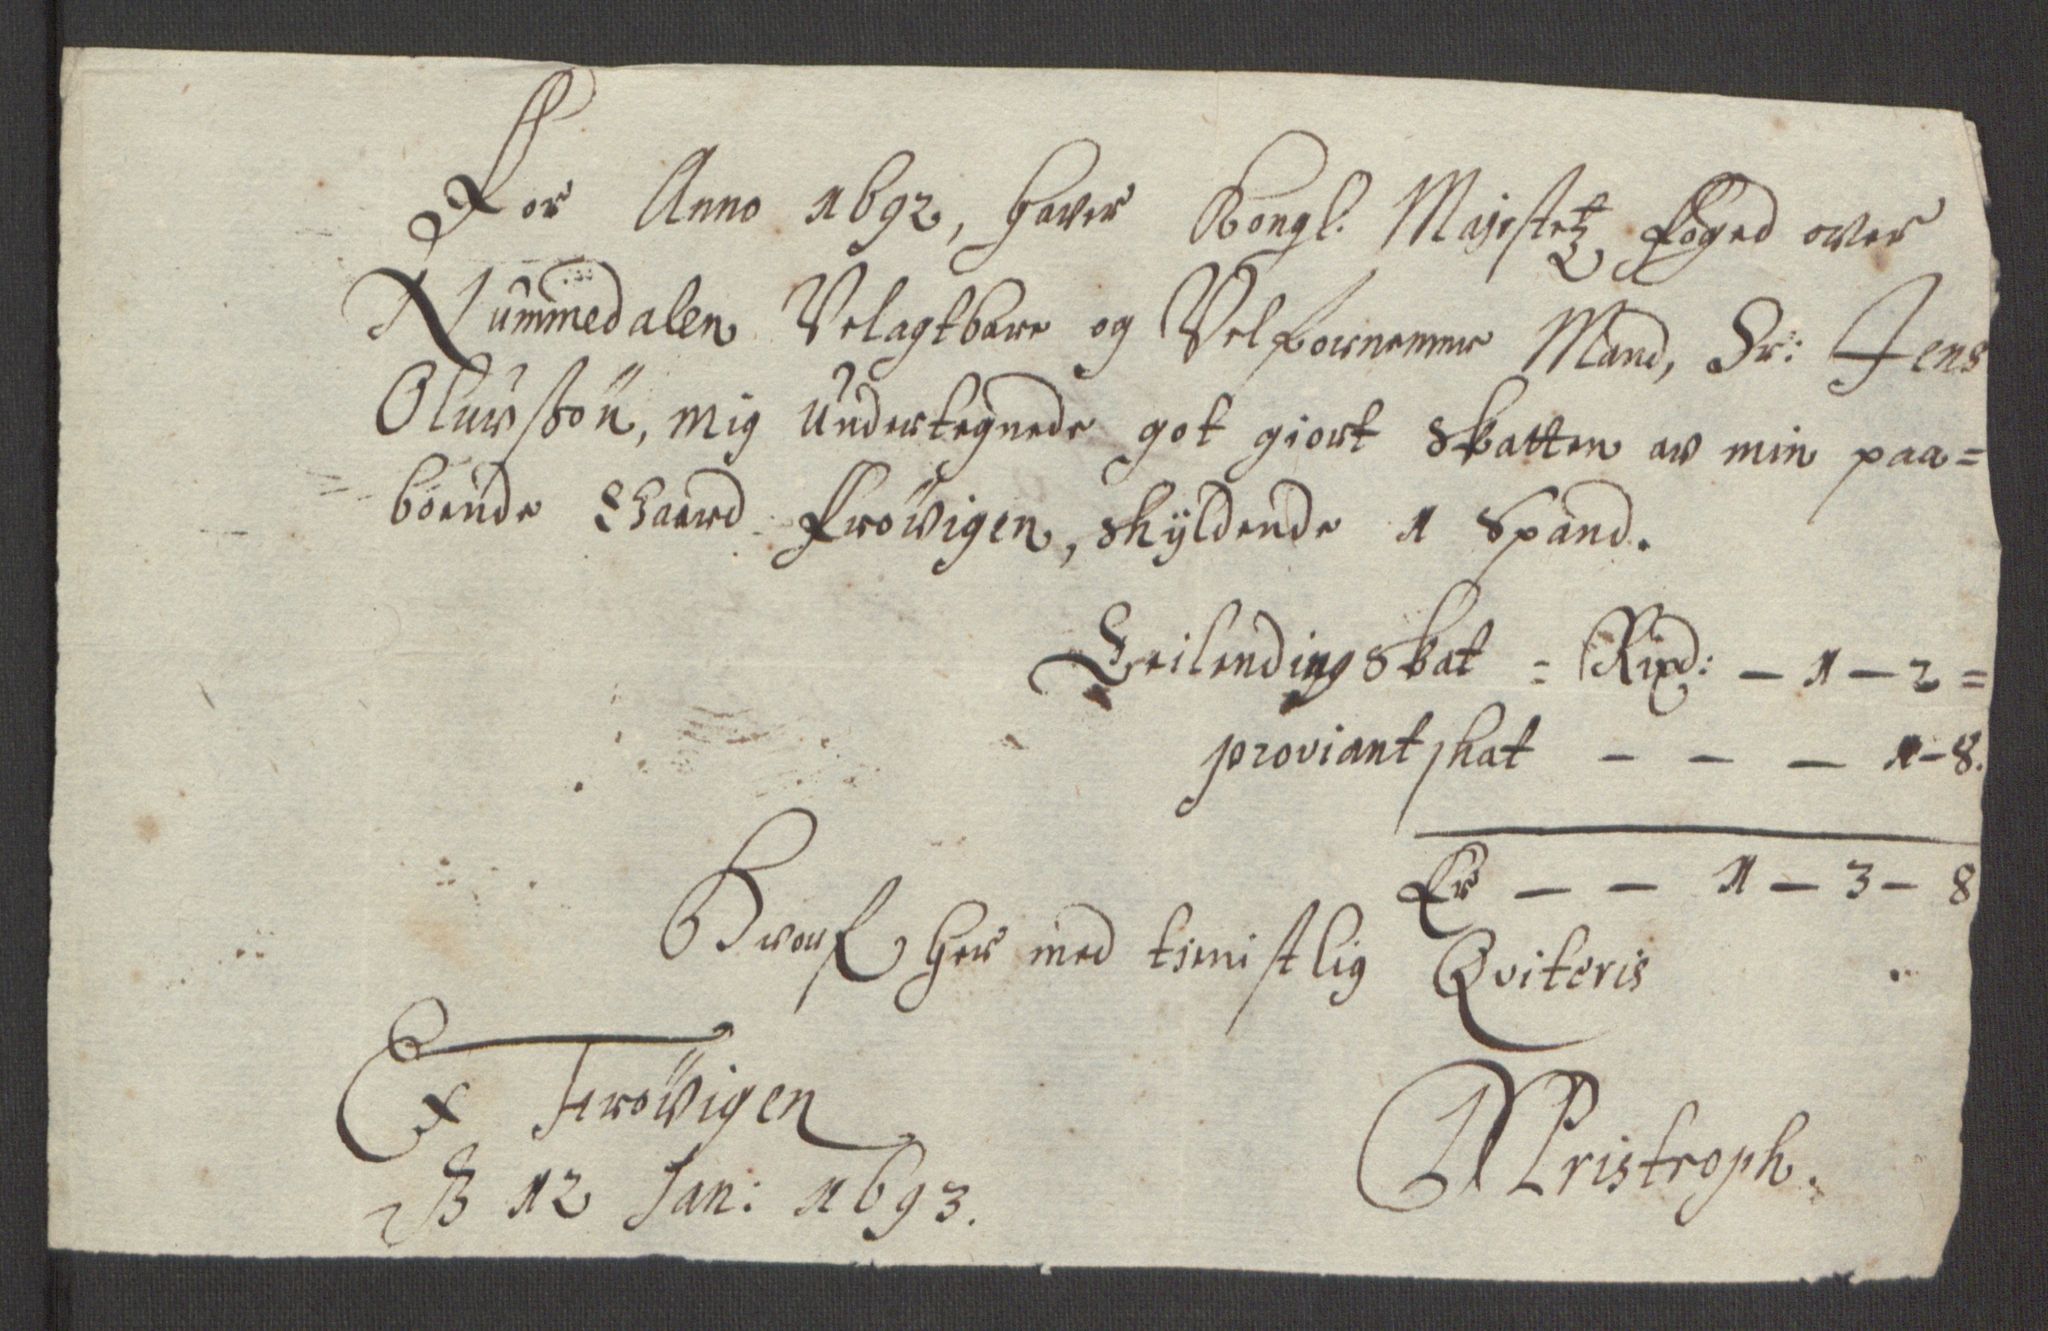 For Anno 1692, haver Kongl. Majestetz Foged over
Nummedalen Velagtbare og Velfornemme Mand, Sr: Jens
Oluvssøn, mig undertegnede got giort Skatten av min paa=
boende Gaard Frøvigen, skyldende 1 Spand.
Leilendingskat = Rixd: — 1 — 2 =
proviantskat — — — 1 — 8.
Er — — 1 — 3 — 8
Hvorf her med tienistlig Qviteris
Ex Frøvigen
D 12 Jan: 1693.
Pristroph.